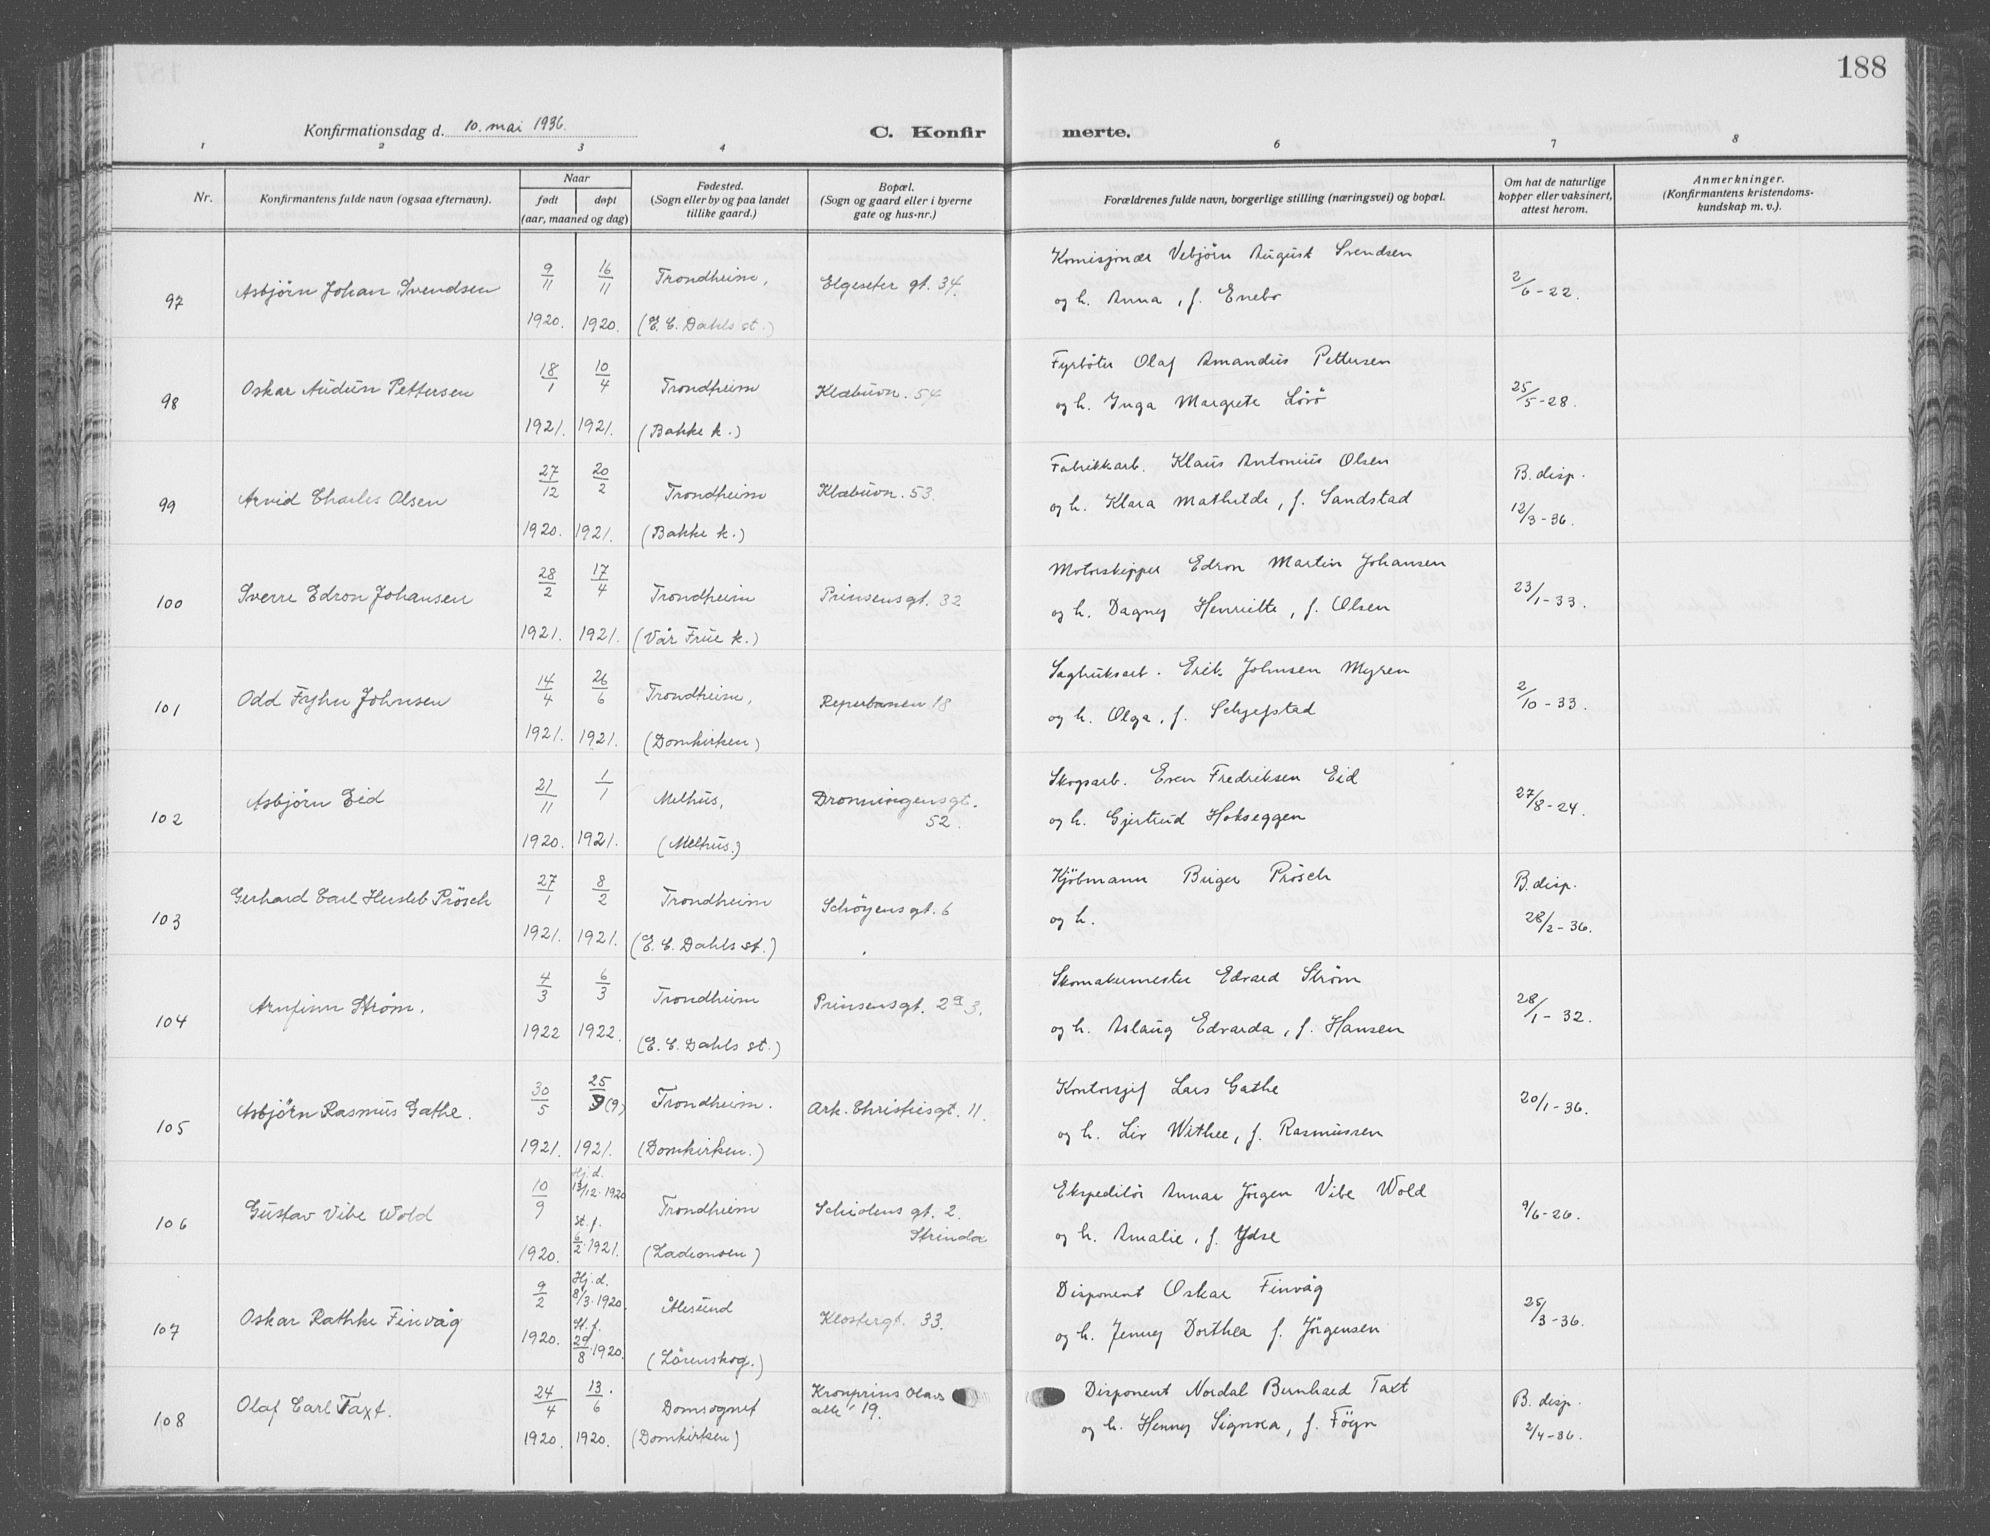 188
Konfirmationsdag d. 10. mai 1936.
C. Konfir merte.
1 2 3 4 6 7 8
Nr.
Konfirmantens fulde navn (ogsaa efternavn).
Naar
født døpt
(aar, maaned og dag)
Fødested.
(Sogn eller by og paa landet
tillike gaard.)
Bopæl.
(Sogn og gaard eller i byerne
gate og hus-nr.)
Forældrenes fulde navn, borgerlige stilling (næringsvei) og bopæl.
Om hat de naturlige
kopper eller vaksinert,
attest herom.
Anmerkninger.
(Konfirmantens kristendoms-
kundskap m. v.).
97 Asbjørn Johan Svendsen 9/11 1920. 16/11 1920. Trondheim, (E. C. Dahls st.) Elgeseter gt. 34.
Komisjonær Vebjørn August Svendsen
og h. Anna, f. Enebo
2/6-22.
98 Oskar Audun Pettersen 18/1 1921. 10/4 1921. Trondheim (Bakke k.) Klæbuvn. 54
Fyrbøter Olaf Amandus Pettersen
og h. Inga Margrete Lörö
25/5-28.
99 Arvid Charles Olsen 27/12 1920. 20/2 1921. Trondheim (Bakke k.) Klæbuvn. 53.
Fabrikkarb. Klaus Antonius Olsen
og h. Klara Mathilde, f. Sandstad
B. disp.
12/3-36.
100 Sverre Edron Johansen 28/2 1921. 17/4 1921. Trondheim (Vår Frue k.) Prinsensgt. 32
Motorskipper Edron Martin Johansen
og h. Dagny Henriette, f. Olsen
23/1-33.
101 Odd Fryhn Johnsen 14/4 1921. 26/6 1921. Trondheim, (Domkirken) Reperbanen 18
Sagbruksarb. Erik Johnsen Myren
og h. Olga, f. Schjefstad
2/10-33.
102 Asbjørn Eid 21/11 1920. 1/1 1921. Melhus, (Melhus.) Dronningensgt.
52.
Skogsarb. Even Fredriksen Eid
og h. Gjertrud Hokseggen
27/8-24.
103 Gerhard Carl Hersleb Prösch 27/1 1921. 8/2 1921. Trondheim (E. C. Dahls st.) Schøyensgt. 6
Kjöbmann Birger Prösch
og h.
B. disp.
28/2-36.
104 Arnfinn Strøm. 4/3 1922 6/3 1922. Trondheim (E. C. Dahls st.) Prinsensgt. 2a 3.
Skomakermester Edvard Strøm
og h. Aslaug Edvarda, f. Hansen
28/1-32.
105 Asbjørn Rasmus Gathe. 30/5 1921. 25/9 (9) 1921. Trondheim. (Domkirken.) Ark. Christiesgt. 11.
Kontorsjef Lars Gathe
og h. Liv Withee, f. Rasmussen
20/1-36.
106 Gustav Vibe Wold 10/9 1920. Hj. d. 13/12.1920 St. f. 6/2.1921. Trondheim (Lademoen) Schiølens gt. 2.
Strinda
Ekspeditör Annar Jörgen Vibe Wold
og h. Amalie, f. Ydse
9/6-26.
107 Oskar Rathke Finvåg 9/2 1920. Hj. d. 8/3.1920. St. f. 29/8.1920. Ålesund (Lørenskog.) Klostergt. 33.
Disponent Oskar Finvåg
og h. Jenny Dorthea f. Jörgensen
25/3-36.
108 Olaf Carl Taxt. 24/4 1920. 13/6 1920. Domsognet (Domkirken) Kronprins Olavs
alle 19.
Disponent Nordal Bernhard Taxt
og h. Henny Signora, f. Föyn
B. disp.
2/4-36.